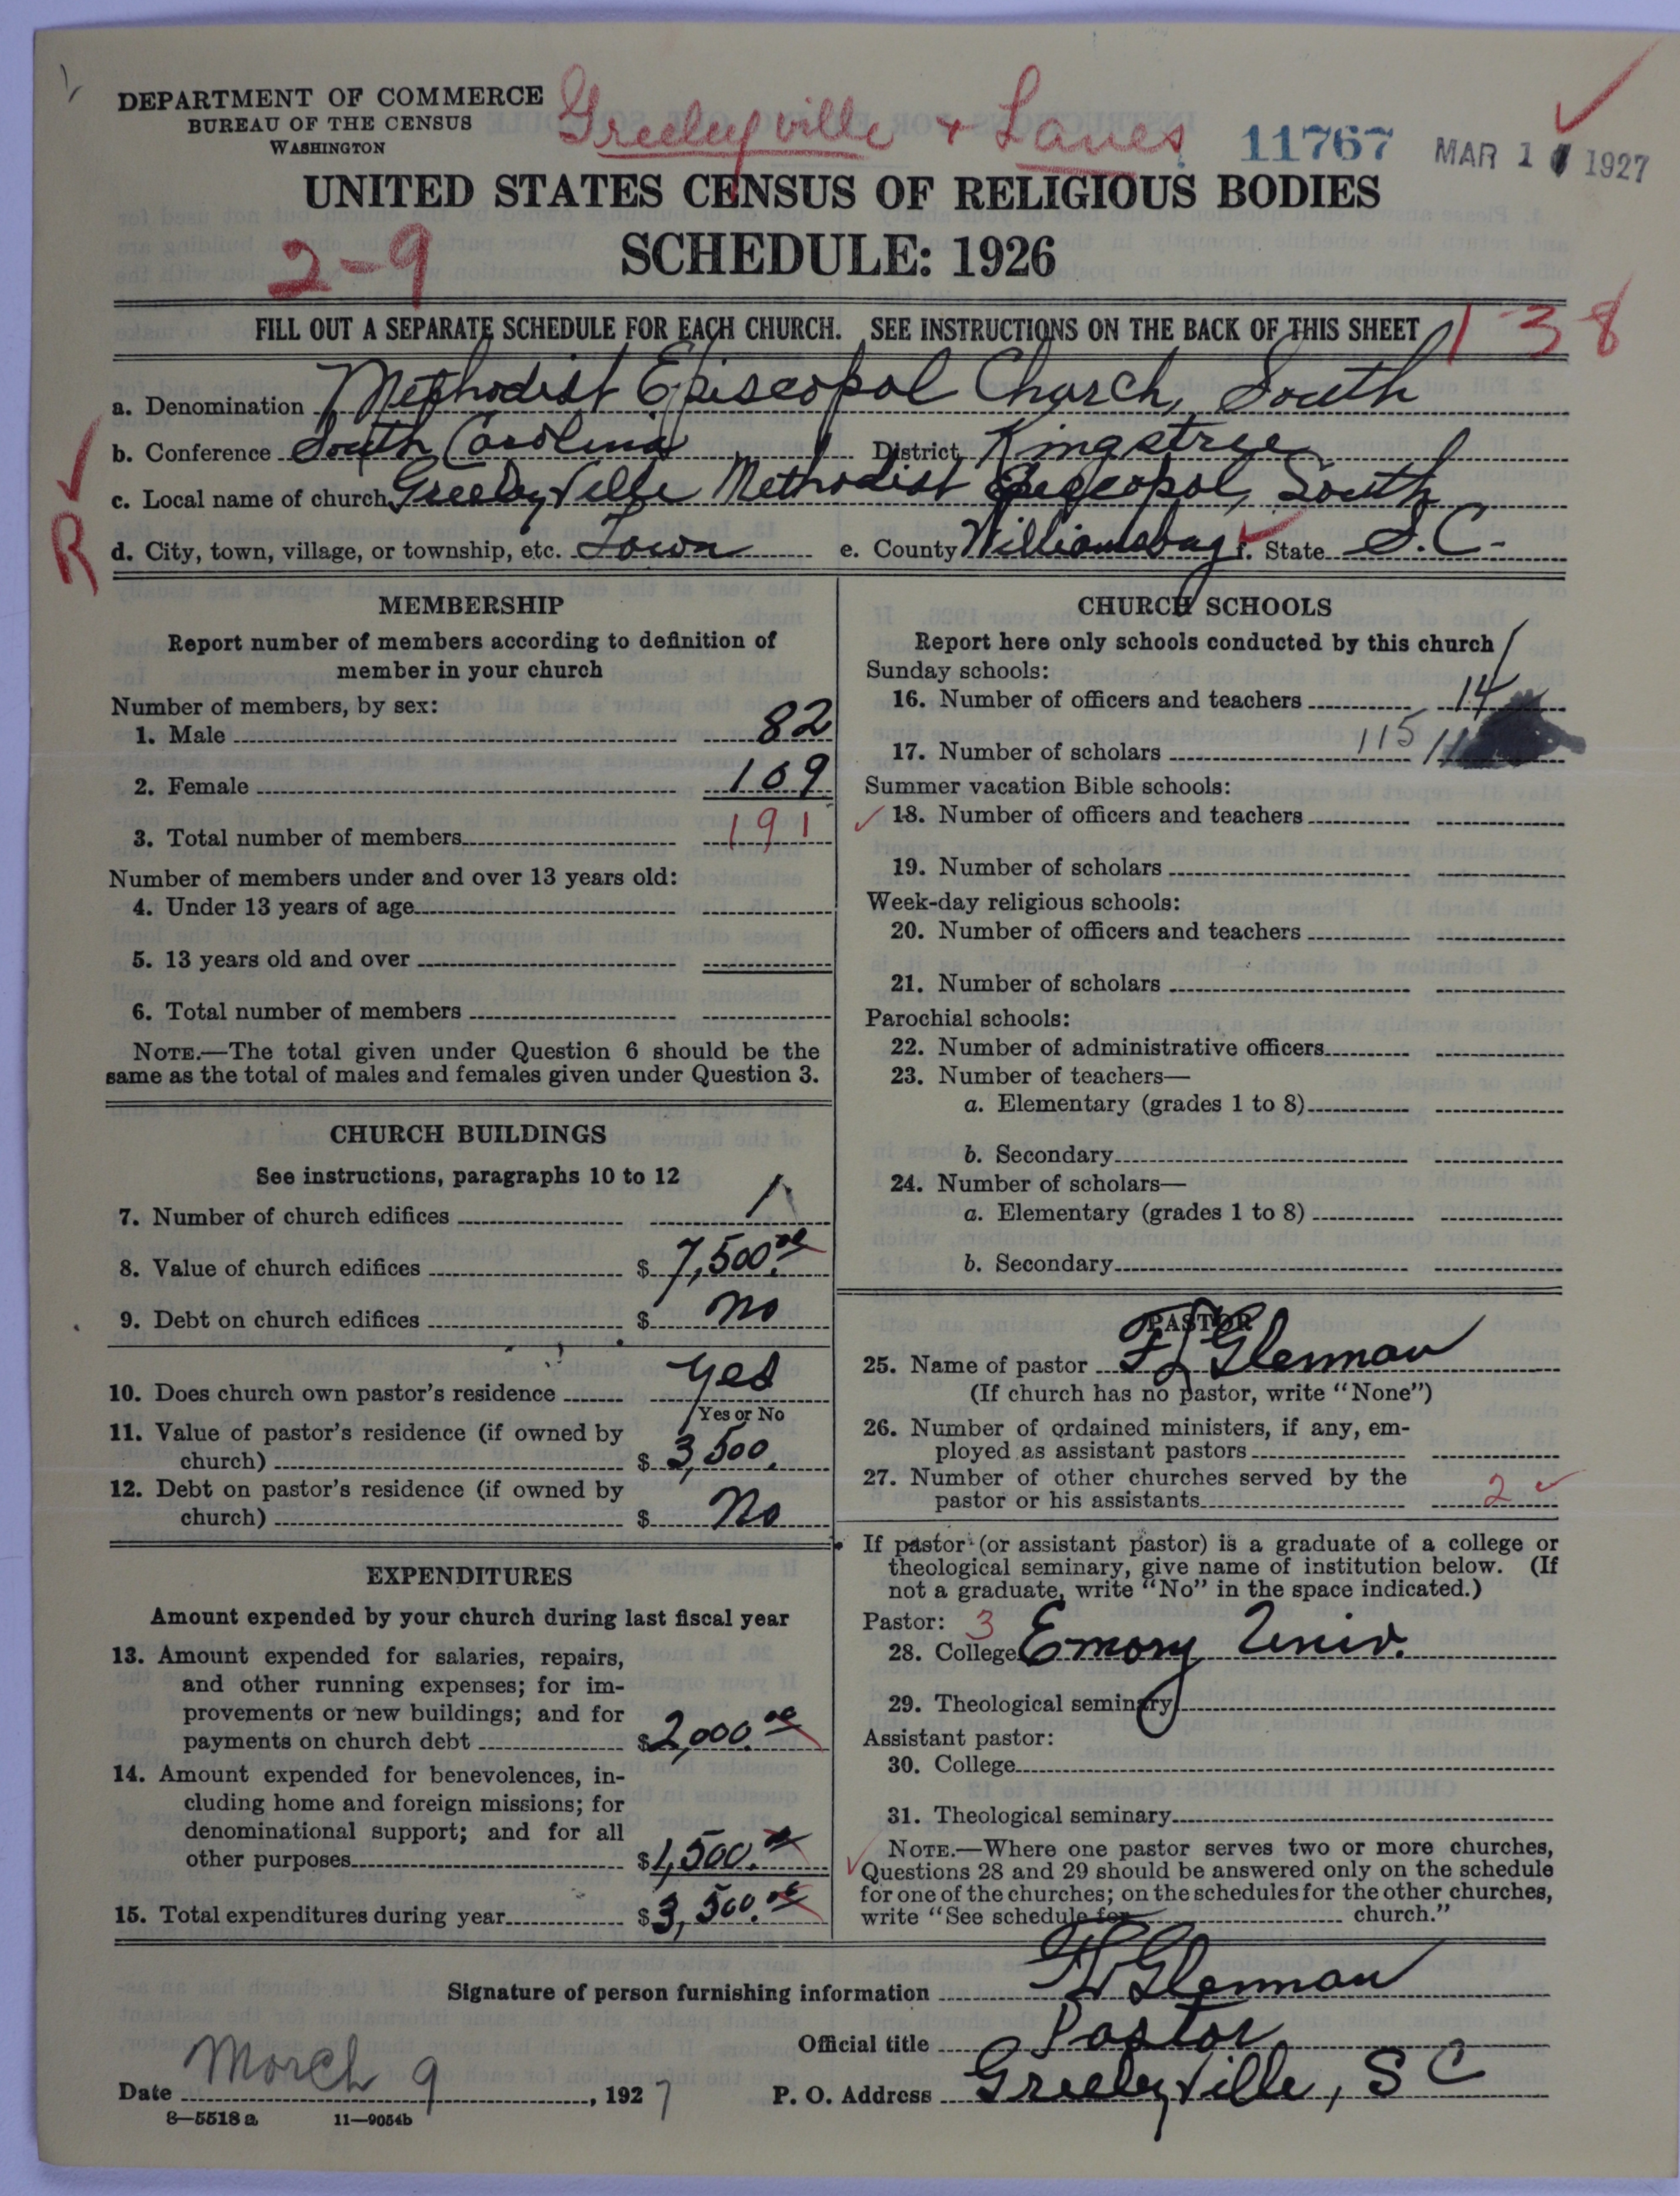 DEPARTMENT OF COMMERCE
BUREAU OF THE CENSUS
WASHINGTON
Greeleyville + Lanes
11767
MAR 1 1927
UNITED STATES CENSUS OF RELIGIOUS BODIES
2-9
SCHEDULE: 1926
FILL OUT A SEPARATE SCHEDULE FOR EACH CHURCH. SEE INSTRUCTIONS ON THE BACK OF THIS SHEET
138
a. Denomination Methodist Episcopol Church, South
b. Conference South Carolina District Kingstree
c. Local name of church Greeleyville Methodist Episcopol, South
R
d. City, town, village, or township, etc. Town e. County Williamsburg f. State S.C.
MEMBERSHIP
Report number of members according to definition of
member in your church
Number of members, by sex:
1. Male 82
2. Female 109
3. Total number of members 191
Number of members under and over 13 years old:
4. Under 13 years of age
5. 13 years old and over
6. Total number of members
NOTE.—The total given under Question 6 should be the
same as the total of males and females given under Question 3.
CHURCH BUILDINGS
See instructions, paragraphs 10 to 12
7. Number of church edifices 1
8. Value of church edifices $ 7,500.00
9. Debt on church edifices $ no
10. Does church own pastor's residence yes
Yes or No
11. Value of pastor's residence (if owned by
church) $ 3,500.
12. Debt on pastor's residence (if owned by
church) $ No
EXPENDITURES
Amount expended by your church during last fiscal year
13. Amount expended for salaries, repairs,
and other running expenses; for im-
provements or new buildings; and for
payments on church debt $ 2,000.00
14. Amount expended for benevolences, in-
cluding home and foreign missions; for
denominational support; and for all
other purposes $ 1,500.00
15. Total expenditures during year $ 3,500.00
CHURCH SCHOOLS
Report here only schools conducted by this church
Sunday schools:
16. Number of officers and teachers 14
17. Number of scholars 115
Summer vacation Bible schools:
18. Number of officers and teachers
19. Number of scholars
Week-day religious schools:
20. Number of officers and teachers
21. Number of scholars
Parochial schools:
22. Number of administrative officers
23. Number of teachers—
a. Elementary (grades 1 to 8)
b. Secondary
24. Number of scholars—
a. Elementary (grades 1 to 8)
b. Secondary
PASTOR
25. Name of pastor F L Glennan
(If church has no pastor, write "None")
26. Number of ordained ministers, if any, em-
ployed as assistant pastors
27. Number of other churches served by the
pastor or his assistants 2
If pastor (or assistant pastor) is a graduate of a college or
theological seminary, give name of institution below. (If
not a graduate, write "No" in the space indicated.)
Pastor: 3
28. College Emory Univ.
29. Theological seminary
Assistant pastor:
30. College
31. Theological seminary
NOTE.—Where one pastor serves two or more churches,
Questions 28 and 29 should be answered only on the schedule
for one of the churches; on the schedules for the other churches,
write "See schedule for church."
Signature of person furnishing information F L Glennan
Official title Pastor
Date March 9, 1927 P. O. Address Greeleyville, S C
8—5518a 11—9054b